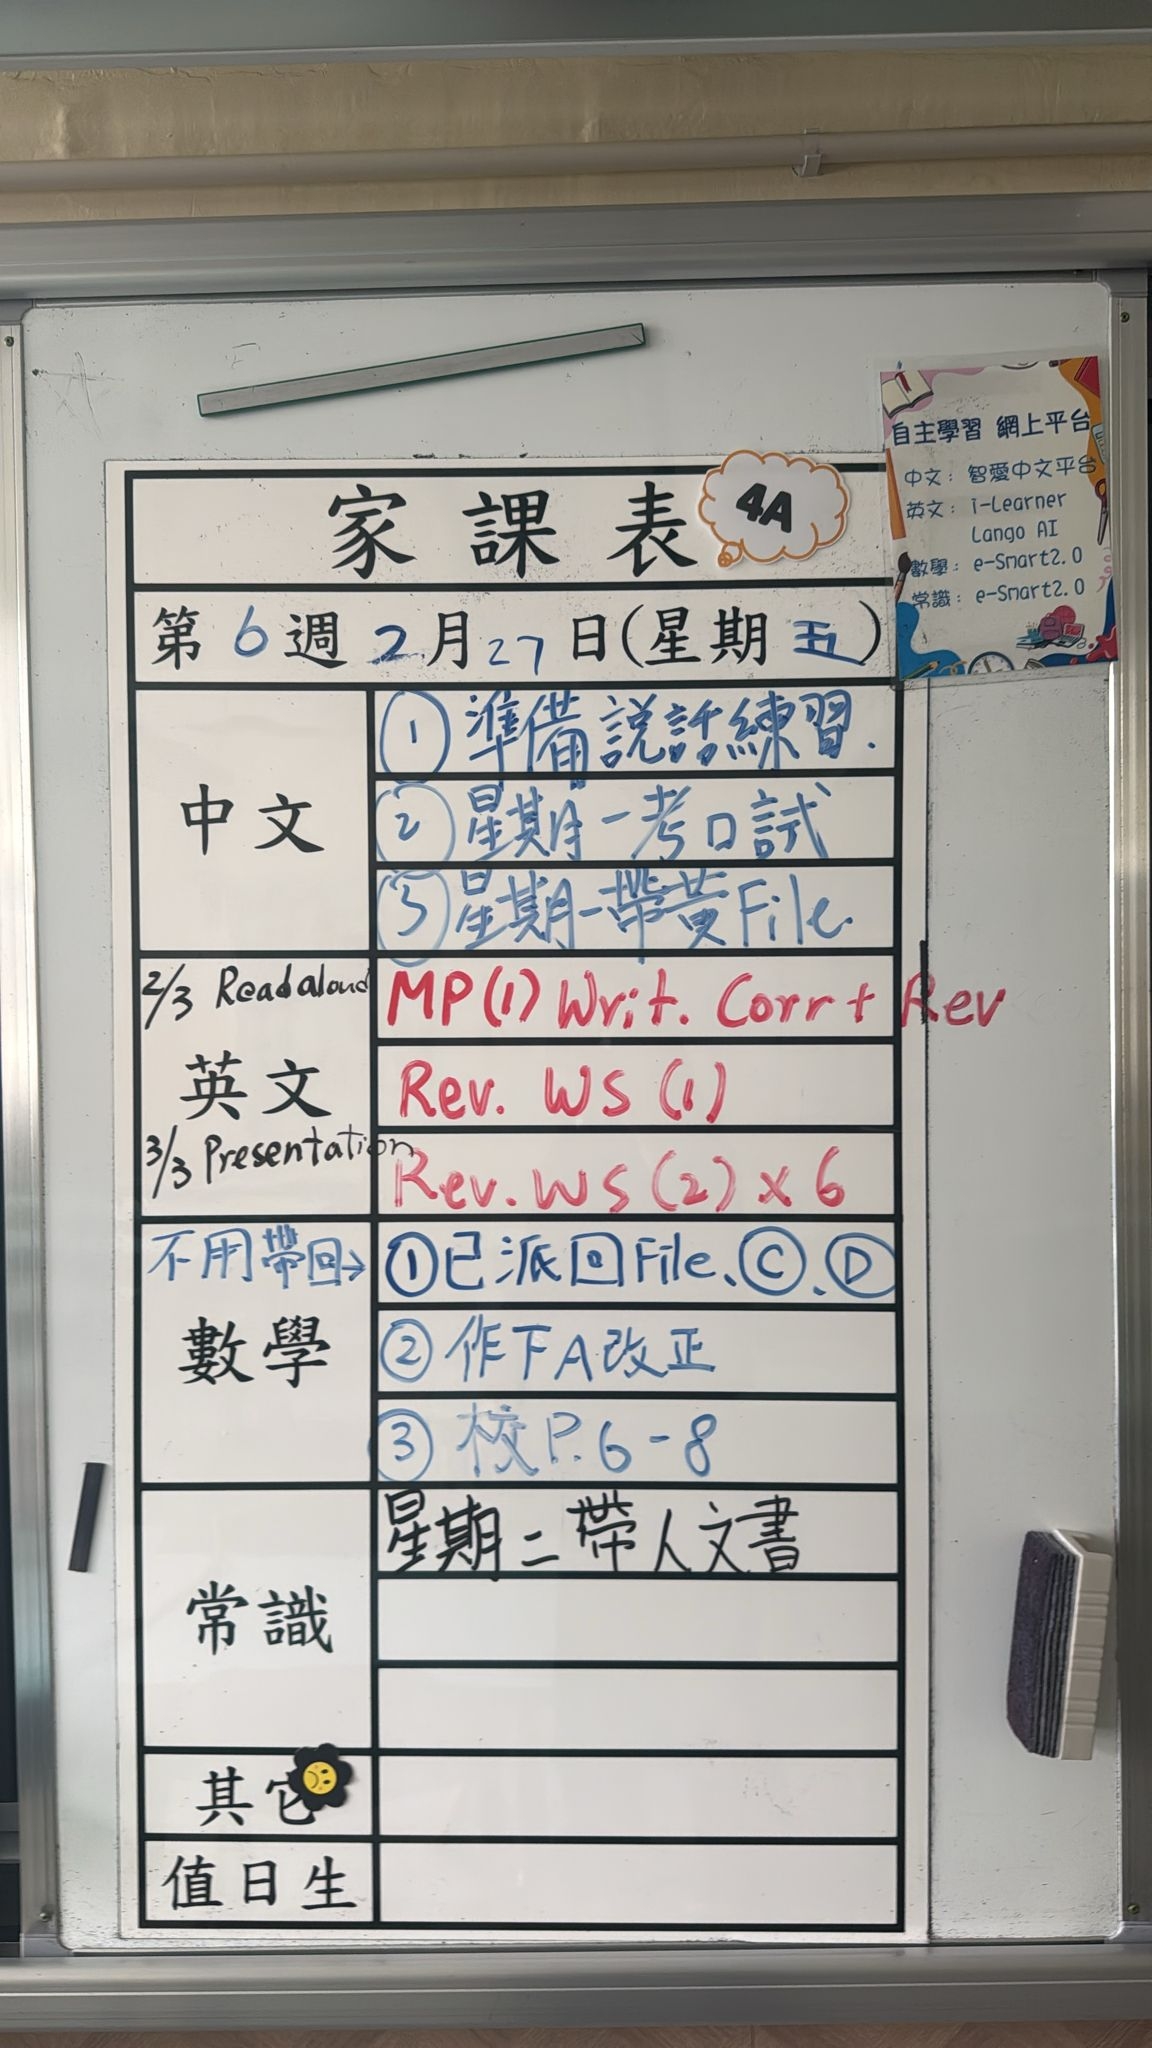 家課表 4A
自主學習 網上平台
中文：智愛中文平台
英文：i-Learner
Lango AI
數學：e-Smart2.0
常識：e-Smart2.0
第6週2月27日(星期五)
中文
①準備說話練習.
②星期一考口試
③星期一帶黃File.
2/3 Readaloud
英文
3/3 Presentation
MP(1) Writ. Corr + Rev
Rev. WS (1)
Rev. WS (2) x 6
不用帶回→
數學
①已派回File、Ⓒ、Ⓓ
②作下A改正
③校P.6-8
常識
星期二帶人文書
其它
值日生